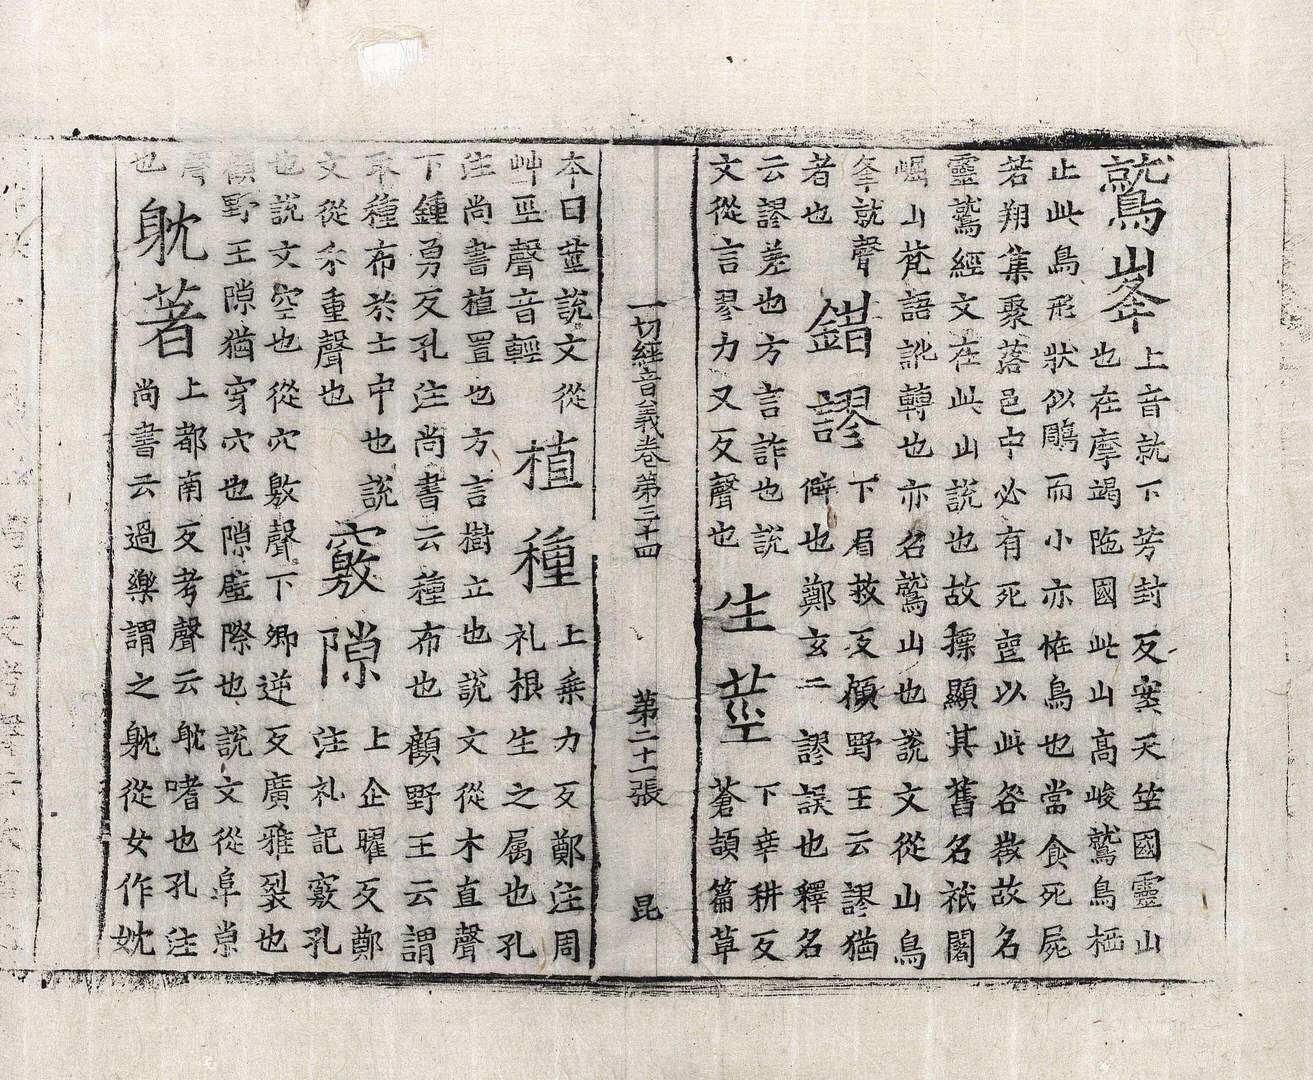 鷲峯
上音就下芳封反案天竺國靈山
也在摩竭陁國此山高峻鷲鳥栖
止此鳥形狀似鵰而小亦恠鳥也當食死屍
若翔集聚落邑中必有死亡以此咎徵故名
靈鷲經文在此山說也故摽顯其舊名祇闍
崛山梵語訛轉也亦名鷲山也說文從山鳥
夆就聲
者也
錯謬
下眉救反顧野王云謬猶
僻也鄭玄云謬誤也釋名
云謬差也方言詐也說
文從言翏力又反聲也
生莖
下幸耕反
蒼頡篇草
一切經音義卷第三十四 第二十一張 昆
本曰莖說文從
艸巠聲音輕
植種
上乘力反鄭注周
礼根生之属也孔
注尚書植置也方言樹立也說文從木直聲
下鍾勇反孔注尚書云種布也顧野王云謂
取種布於土中也說
文從禾重聲也
竅隙
上企曜反鄭
注礼記竅孔
也說文空也從穴敫聲下卿逆反廣雅裂也
顧野王隙猶穿穴也隙壁際也說文從阜𡭴
聲
也
躭著
上都南反考聲云躭嗜也孔注
尚書云過樂謂之躭從女作妉